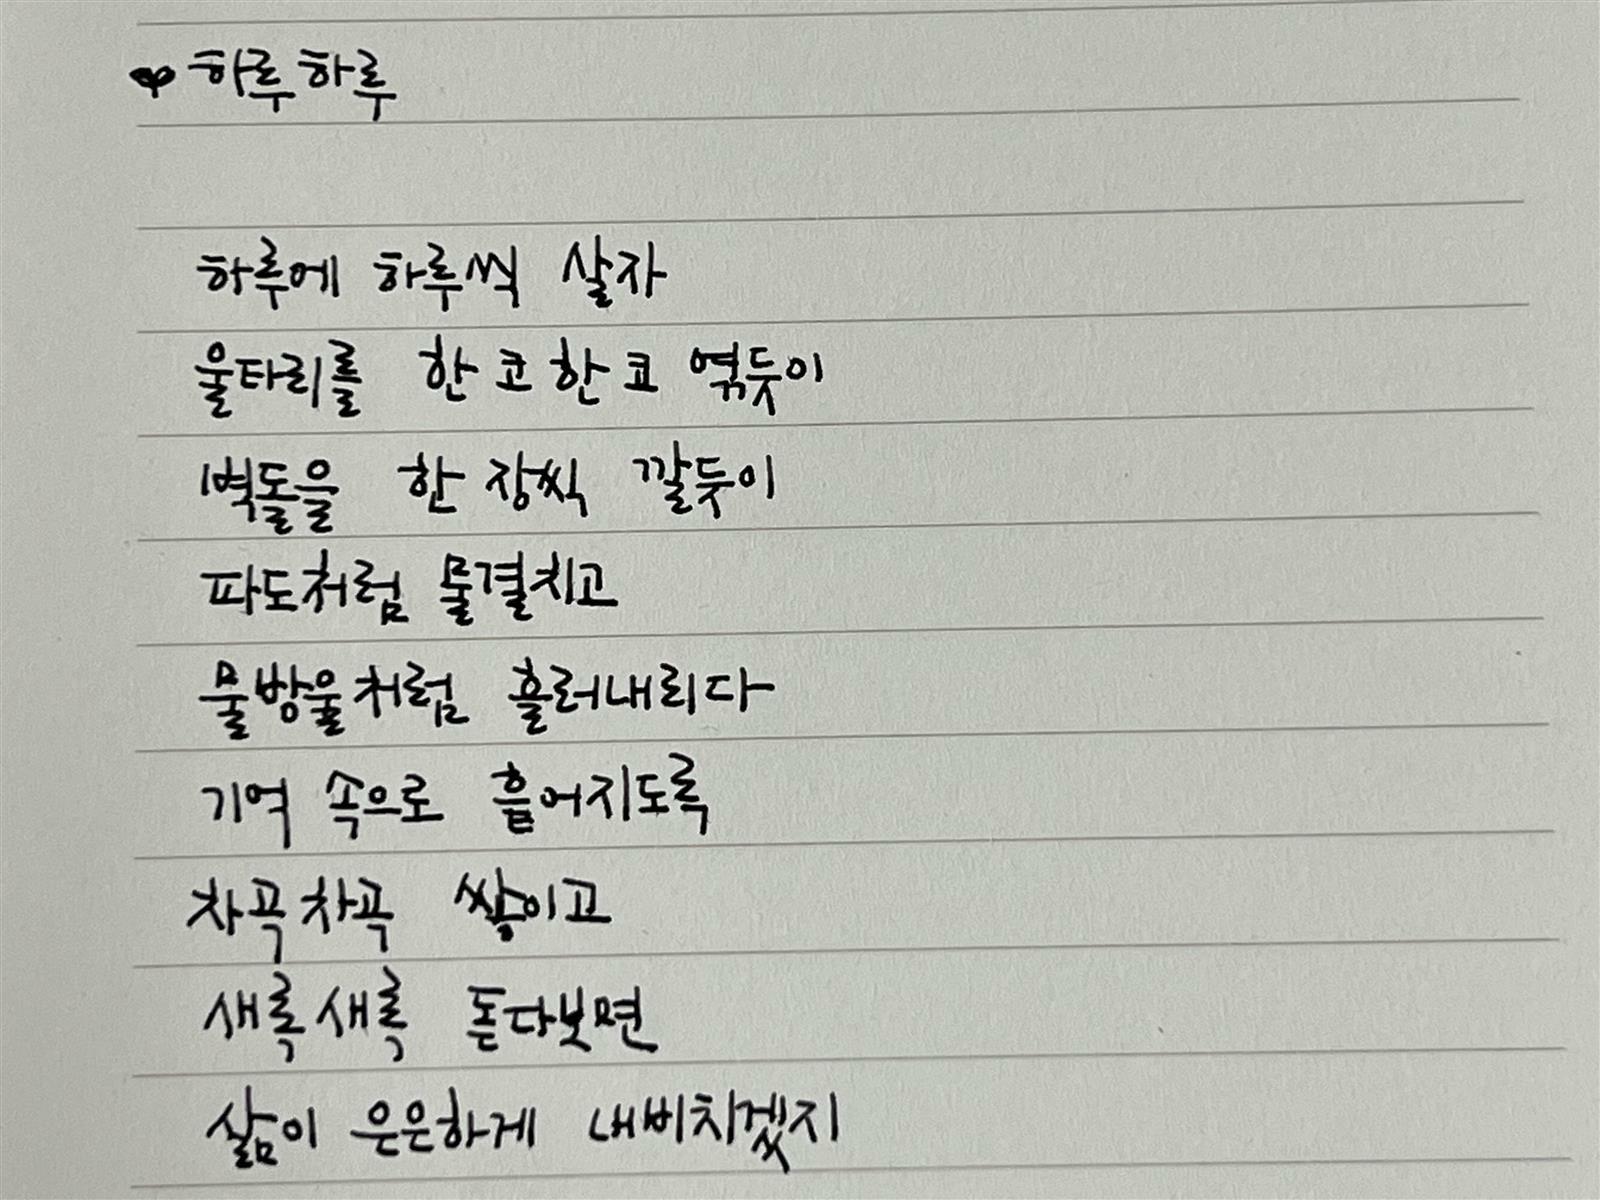 하루하루
하루에 하루씩 살자
울타리를 한코한코 엮듯이
벽돌을 한 장씩 깔듯이
파도처럼 물결치고
물방울처럼 흘러내리다
기억 속으로 흩어지도록
차곡차곡 쌓이고
새록새록 돋다보면
삶이 은은하게 내비치겠지